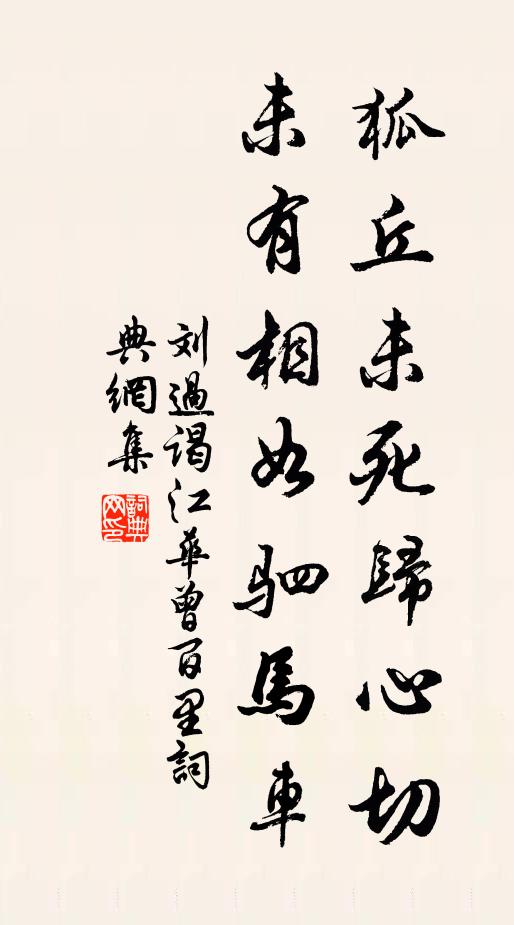 狐丘未死歸心切
未有相如駟馬車
刘過謁江華曾百里詞
典網集
詞典网印